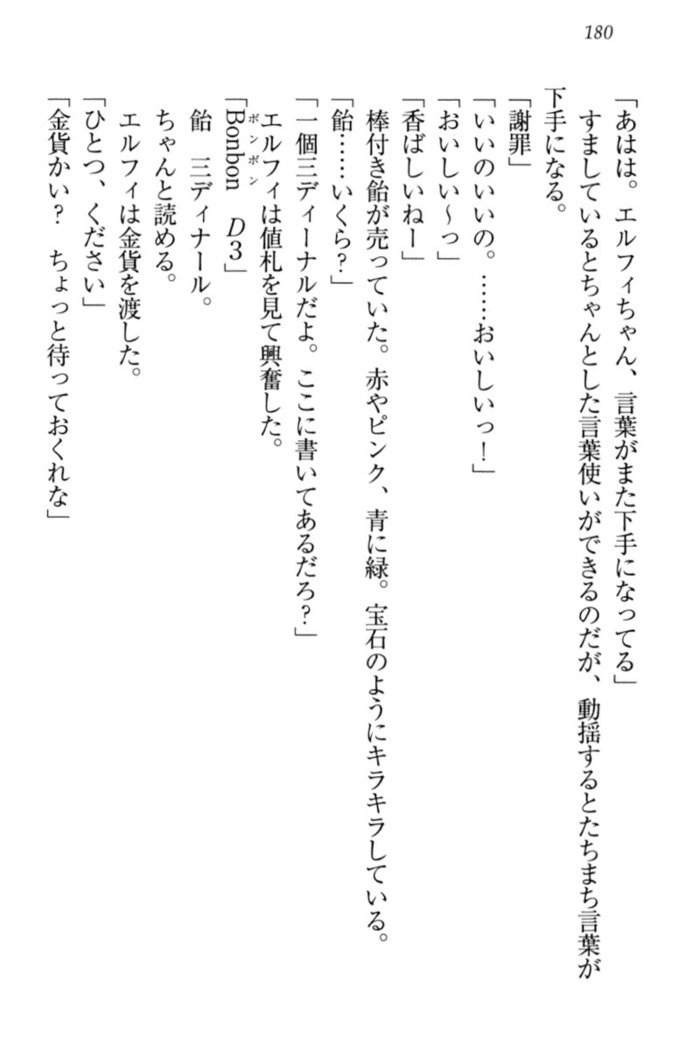 180
「あはは。エルフィちゃん、言葉がまた下手になってる」
すましているとちゃんとした言葉使いができるのだが、動揺するとたちまち言葉が
下手になる。
「謝罪」
「いいのいいの。……おいしいっ！」
「おいしい～っ」
「香ばしいねー」
棒付き飴が売っていた。赤やピンク、青に緑。宝石のようにキラキラしている。
「飴……いくら？」
「一個三ディーナルだよ。ここに書いてあるだろ？」
エルフィは値札を見て興奮した。
「Bonbon D3」
ボンボン
飴　三ディナール。
ちゃんと読める。
エルフィは金貨を渡した。
「ひとつ、ください」
「金貨かい？　ちょっと待っておくれな」